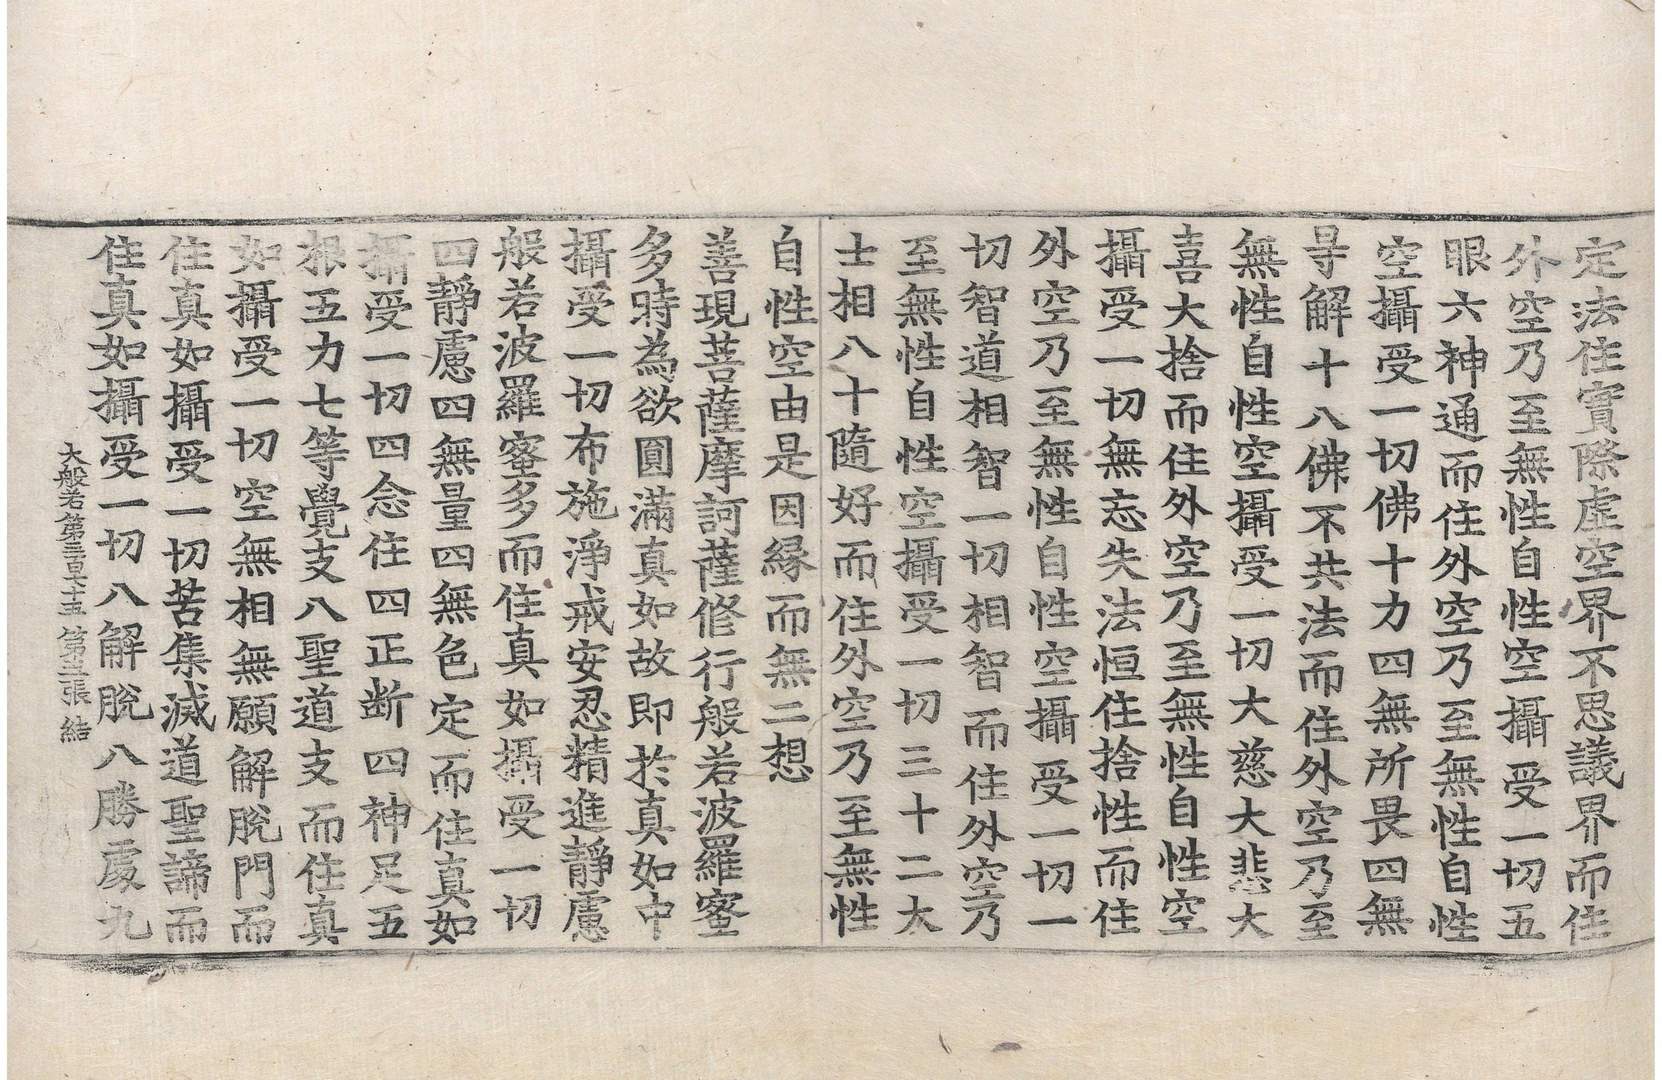 定法住實際虛空界不思議界而住
外空乃至無性自性空攝受一切五
眼六神通而住外空乃至無性自性
空攝受一切佛十力四無所畏四無
㝵解十八佛不共法而住外空乃至
無性自性空攝受一切大慈大悲大
喜大捨而住外空乃至無性自性空
攝受一切無忘失法恒住捨性而住
外空乃至無性自性空攝受一切一
切智道相智一切相智而住外空乃
至無性自性空攝受一切三十二大
士相八十隨好而住外空乃至無性
自性空由是因緣而無二想
善現菩薩摩訶薩修行般若波羅蜜
多時為欲圓滿真如故即於真如中
攝受一切布施淨戒安忍精進靜慮
般若波羅蜜多而住真如攝受一切
四靜慮四無量四無色定而住真如
攝受一切四念住四正断四神足五
根五力七等覺支八聖道支而住真
如攝受一切空無相無願解脫門而
住真如攝受一切苦集滅道聖諦而
住真如攝受一切八解脫八勝處九
大般若第三百七十五 第張 結